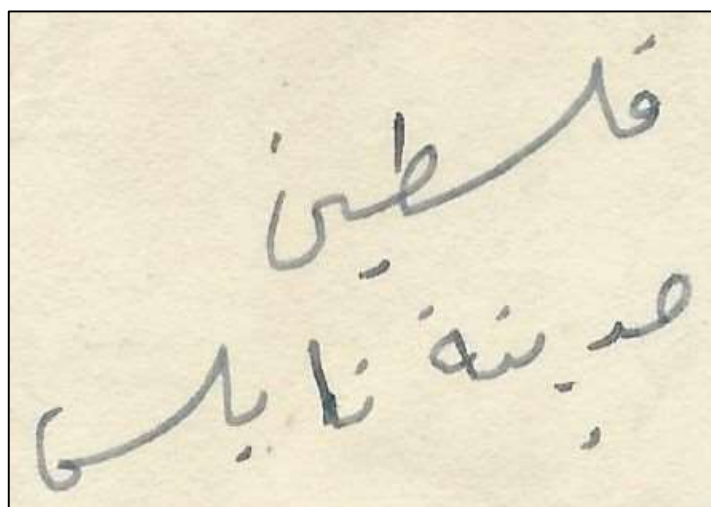 فلسطين
مدينة نابلس